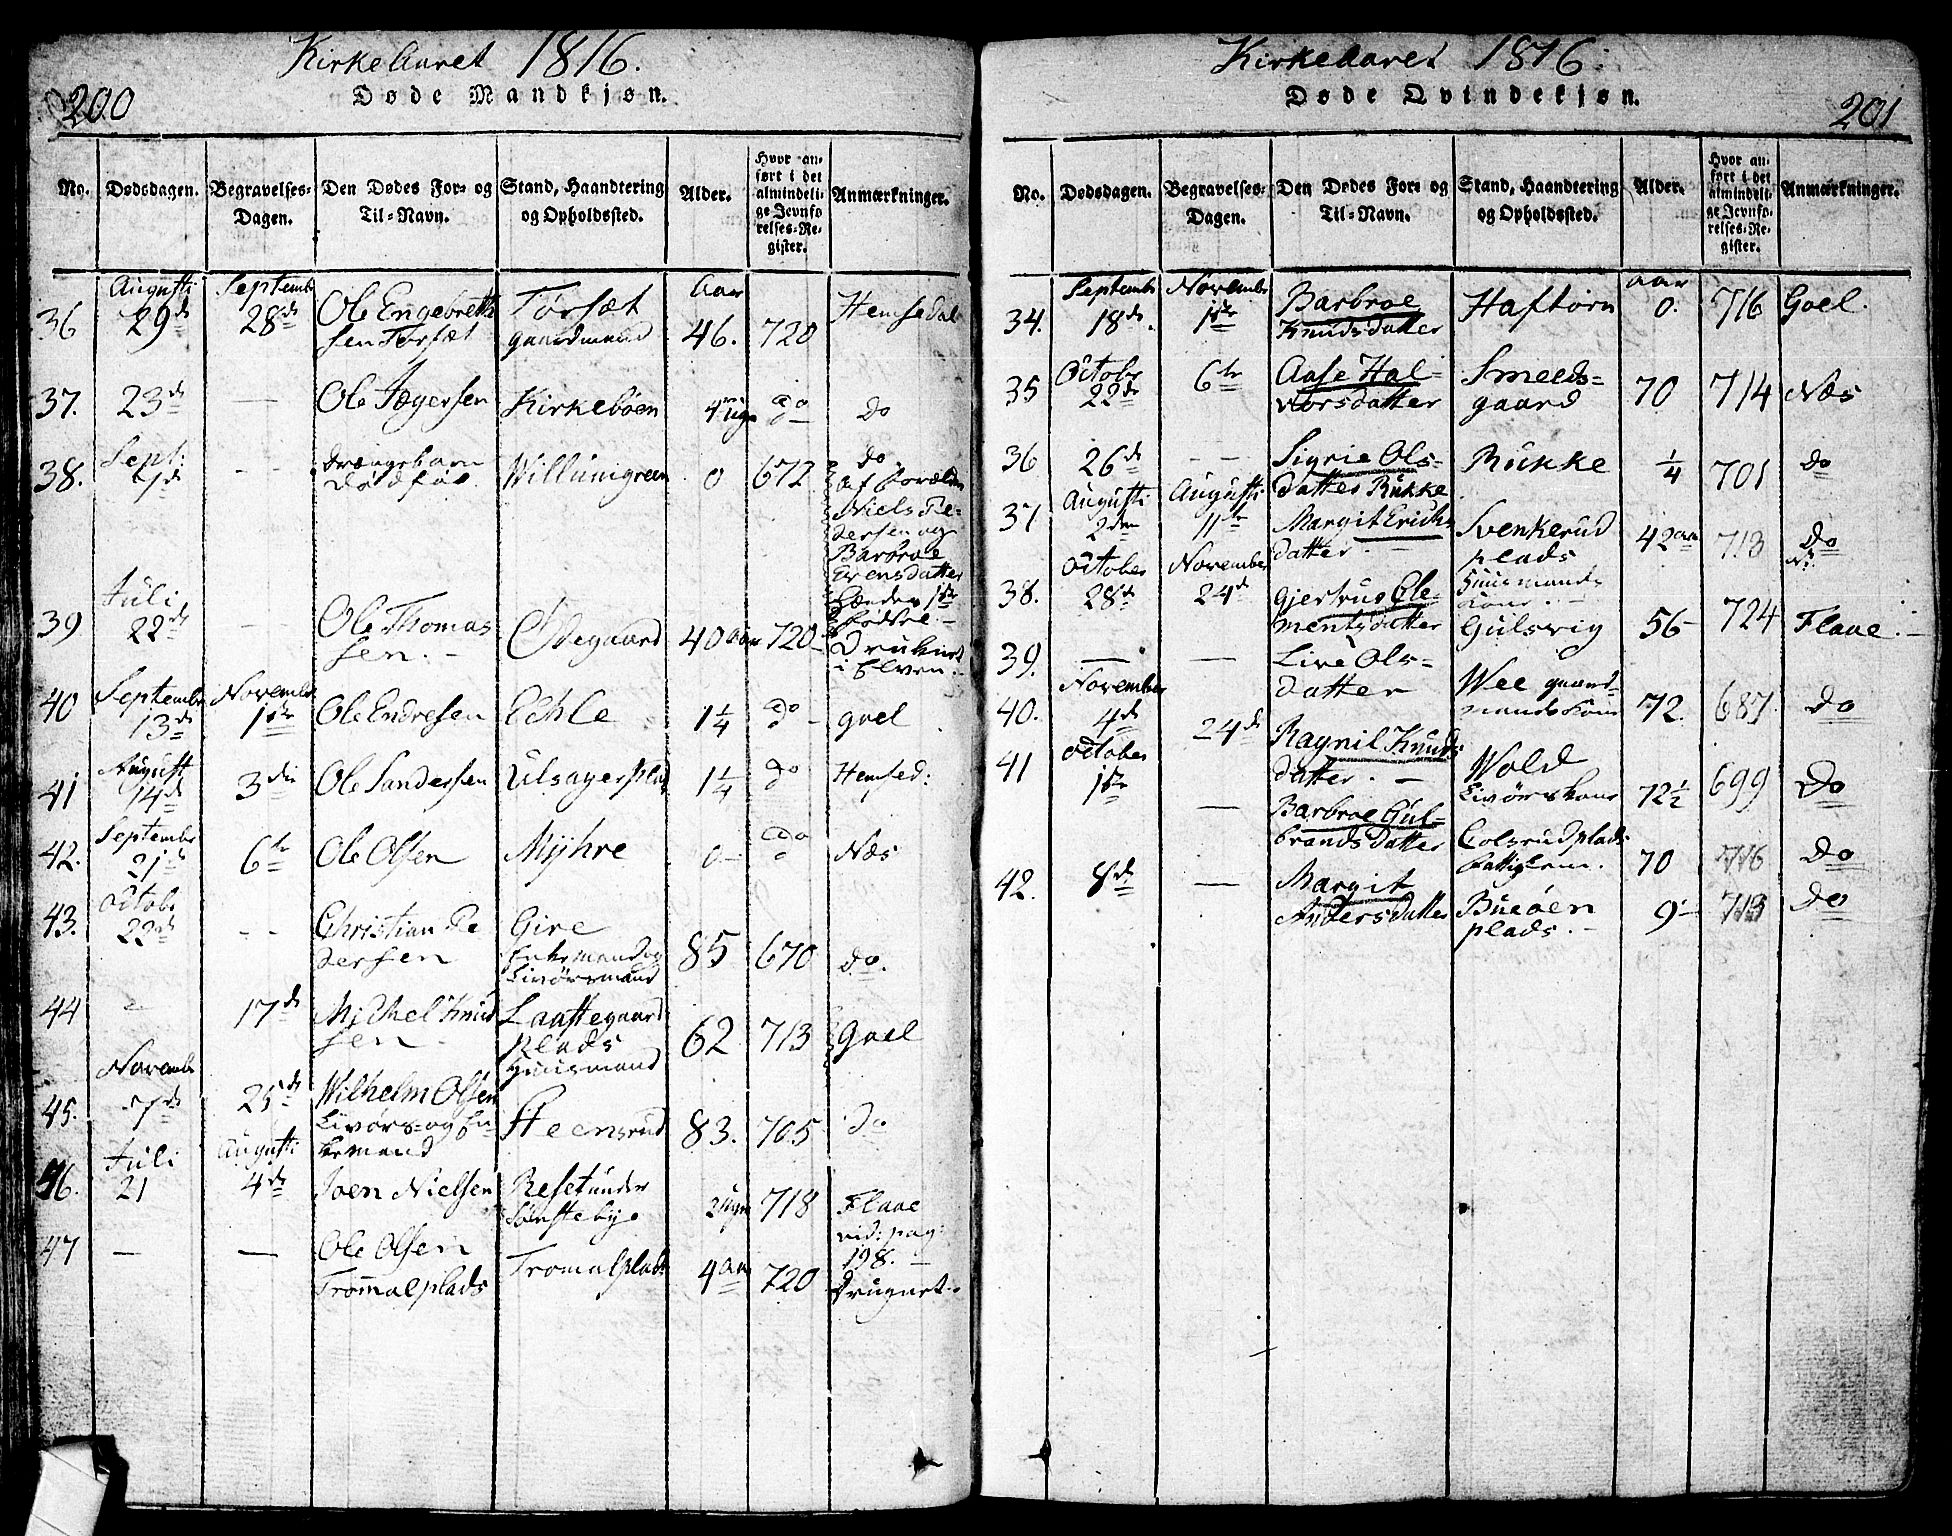 Kirke Aaret 1816.
200
Døde Mandkjøn.
No. Dødsdagen. Begravelses-Dagen. Den Dødes For- og Til-Navn. Stand, Haandtering og Opholdssted. Alder. Hvor anført i det almindelige Jevnførelses-Register. Anmærkninger.
Augusti Septembr Aar
36 29de 28de Ole Engebrethsen Torset Torset gaardmand 46. 720 Hemsedal
37. 23de — Ole Asgersen Kirkebøen 4 uger do do
Sept:
38. 1de - - Drængebarn Dødfød. Willumgreen 0 672 do
af Foræld
Niels Pe-
dersen og
Barbroe
Evensdatter
hændes 1ste
Fødsel
Juli
39 22de - Ole Thomas
sen. - Ødegaard 40 aar 720 Druknet
i Elven.
Septembr Novembr
40 13de 1ste Ole Endresen Echle 1 1/4 do goel
August
41 14de 3die Ole Sandersen Ulsagerplad 1 1/4 do Hemsed:
Septembr
42. 21de 6te Ole Olsen Myhre 0 do Næs
Octobr
43. 22de - - Christian Pe
dersen Gire
Enkemand og
Livørsmand 85 670 do.
44 - 17de Michel Knud
sen Laastegaard
plads
Huusmand 62 713 Goel
Novembr
45. 7de 25de Wilhelm Olsen
Livørs- og En-
kemand Heensrud 83. 705 do
Juli Augusti
46. 21 4de Joen Nielsen Resetunder
Sønsteby 2 uger 718 Flaae
vid: pag:
198.
47 — — Ole Olsen
Trommalplads Tromalplads 4 aar 720 Drugnet.
Kirkeaaret 1816:
Døde Qvindekjøn.
201
No. Dødsdagen. Begravelses-Dagen. Den Dødes For- og Til-Navn. Stand, Haandtering og Opholdssted. Alder. Hvor anført i det almindelige Jevnførelses-Register. Anmærkninger.
Septembr Novembr aar
34. 18de 1ste Barbroe
Knudsdatter Haftorn 0. 716 Goel.
Octobr
35 22de 6te Aase Hal-
vorsdatter Smeeds-
gaard 70 714 Næs
36 26de - - Sigrie Ols-
datter Rukke Rukke 1/4 701 do
Augusti Augusti
37 2den 11te Margit Erichs
datter. - Svenkerud
plads
Huusmands
Kone 42 aar 713 do
October November
38. 28de 24de Gjertrud Cle-
mentsdatter Gulsvig 56 724 Flaae.
39. — — Live Ols-
datter Wee gaard-
mands Kone 72. 687 do
November
40. 4de 24de Ragnil Knuds
datter. - Wold
Livørskone 72 1/2 699 do
October
41 1ste — Barbroe Gul-
brandsdatter Colsrudplads
fattiglem. 70 716 do
42. 8de — Margit
Andersdatter Bueøen
plads. 9 713 do